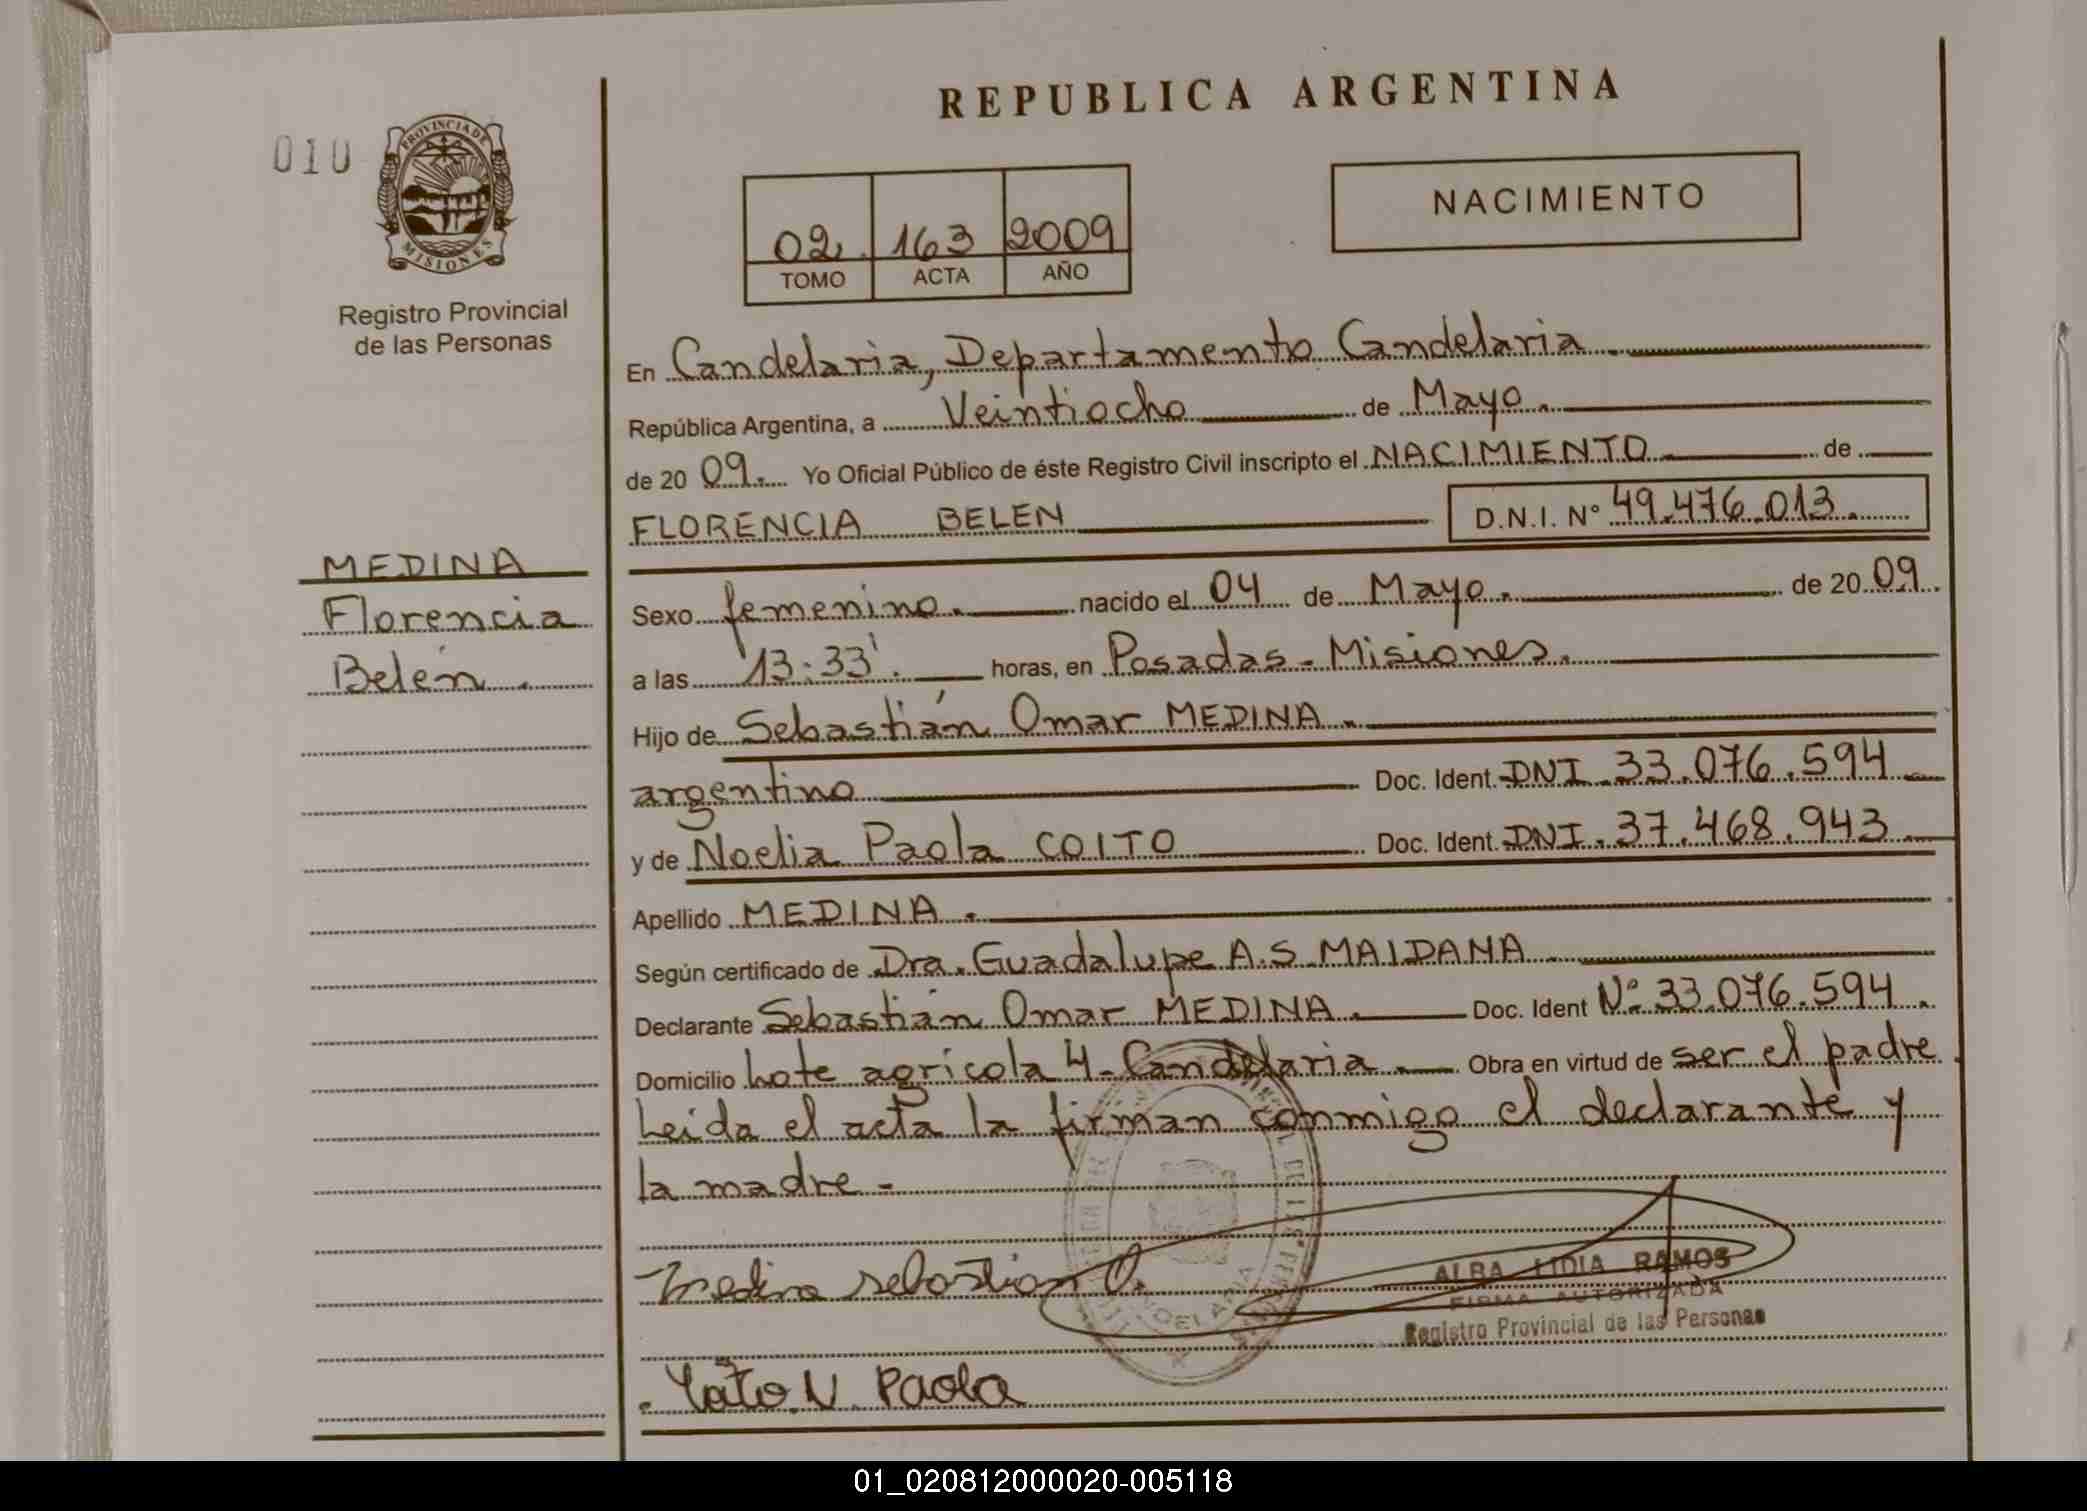 REPUBLICA ARGENTINA
010
PROVINCIA DE
MISIONES
Registro Provincial
de las Personas
NACIMIENTO
02. 163 2009
TOMO ACTA AÑO
En Candelaria, Departamento Candelaria
República Argentina, a Veintiocho de Mayo.
de 20 09. Yo Oficial Público de éste Registro Civil inscripto el NACIMIENTO de
FLORENCIA BELEN D.N.I. N° 49.476.013.
MEDINA
Florencia
Belén.
Sexo femenino. nacido el 04 de Mayo. de 20 09.
a las 13:33'. horas, en Posadas - Misiones.
Hijo de Sebastián Omar MEDINA.
argentino Doc. Ident. DNI. 33.076.594
y de Noelia Paola COITO Doc. Ident. DNI. 37.468.943
Apellido MEDINA.
Según certificado de Dra. Guadalupe A.S. MAIDANA
Declarante Sebastián Omar MEDINA. Doc. Ident N° 33.076.594.
Domicilio Lote agrícola 4 - Candelaria. Obra en virtud de ser el padre.
Leida el acta la firman conmigo el declarante y
la madre -
Medina sebastian O.
ALBA LIDIA RAMOS
FIRMA AUTORIZADA
Registro Provincial de las Personas
N. Paola
01_020812000020-005118